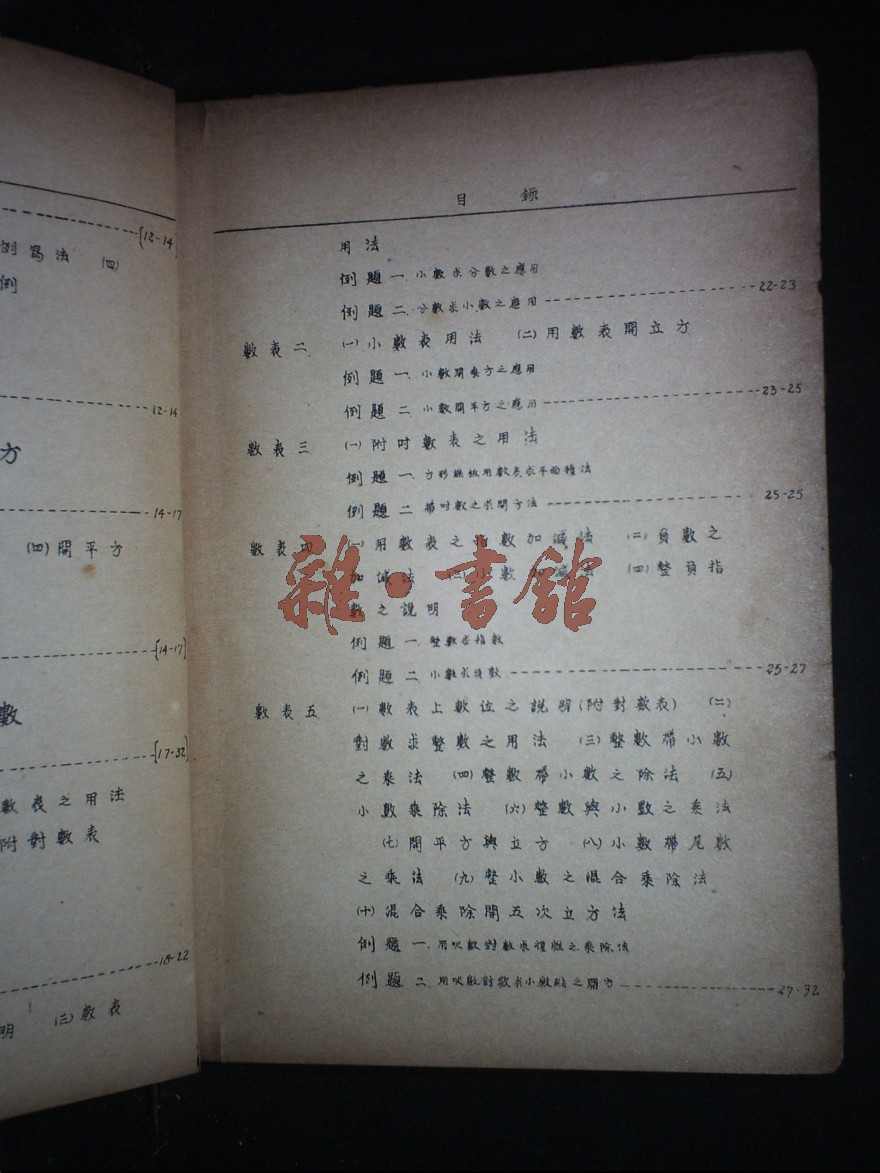 [12-14]
例寫法 ㈣
例
12-14
方
14-17
㈣開平方
[14-17]
數
[17-32]
數表之用法
附對數表
18-22
明 ㈢數表
目 錄
用法
例題一. 小數求分數之應用
例題二. 分數求小數之應用 22-23
數表二 ㈠小數表用法 ㈡用數表開立方
例題一. 小數開乘方之應用
例題二. 小數開平方之應用 23-25
數表三 ㈠附吋數表之用法
例題一. 方形鐵板用數表求平面積法
例題二. 帶吋數之求開方法 25-25
數表四 ㈠用數表之指數加減法 ㈡負數之
加減法 ㈢小數加減法 ㈣整負指
數之說明
例題一. 整數求指數
例題二. 小數求負數 25-27
數表五 ㈠數表上數位之說明(附對數表) ㈡
對數求整數之用法 ㈢整數帶小數
之乘法 ㈣整數帶小數之除法 ㈤
小數乘除法 ㈥整數與小數之乘法
㈦開平方與立方 ㈧小數帶尾數
之乘法 ㈨整小數之混合乘除法
㈩混合乘除開五次立方法
例題一. 用吹數對數求複雜之乘除法
例題二. 用吹數對數求小數點之開方 27-32
雜·書館